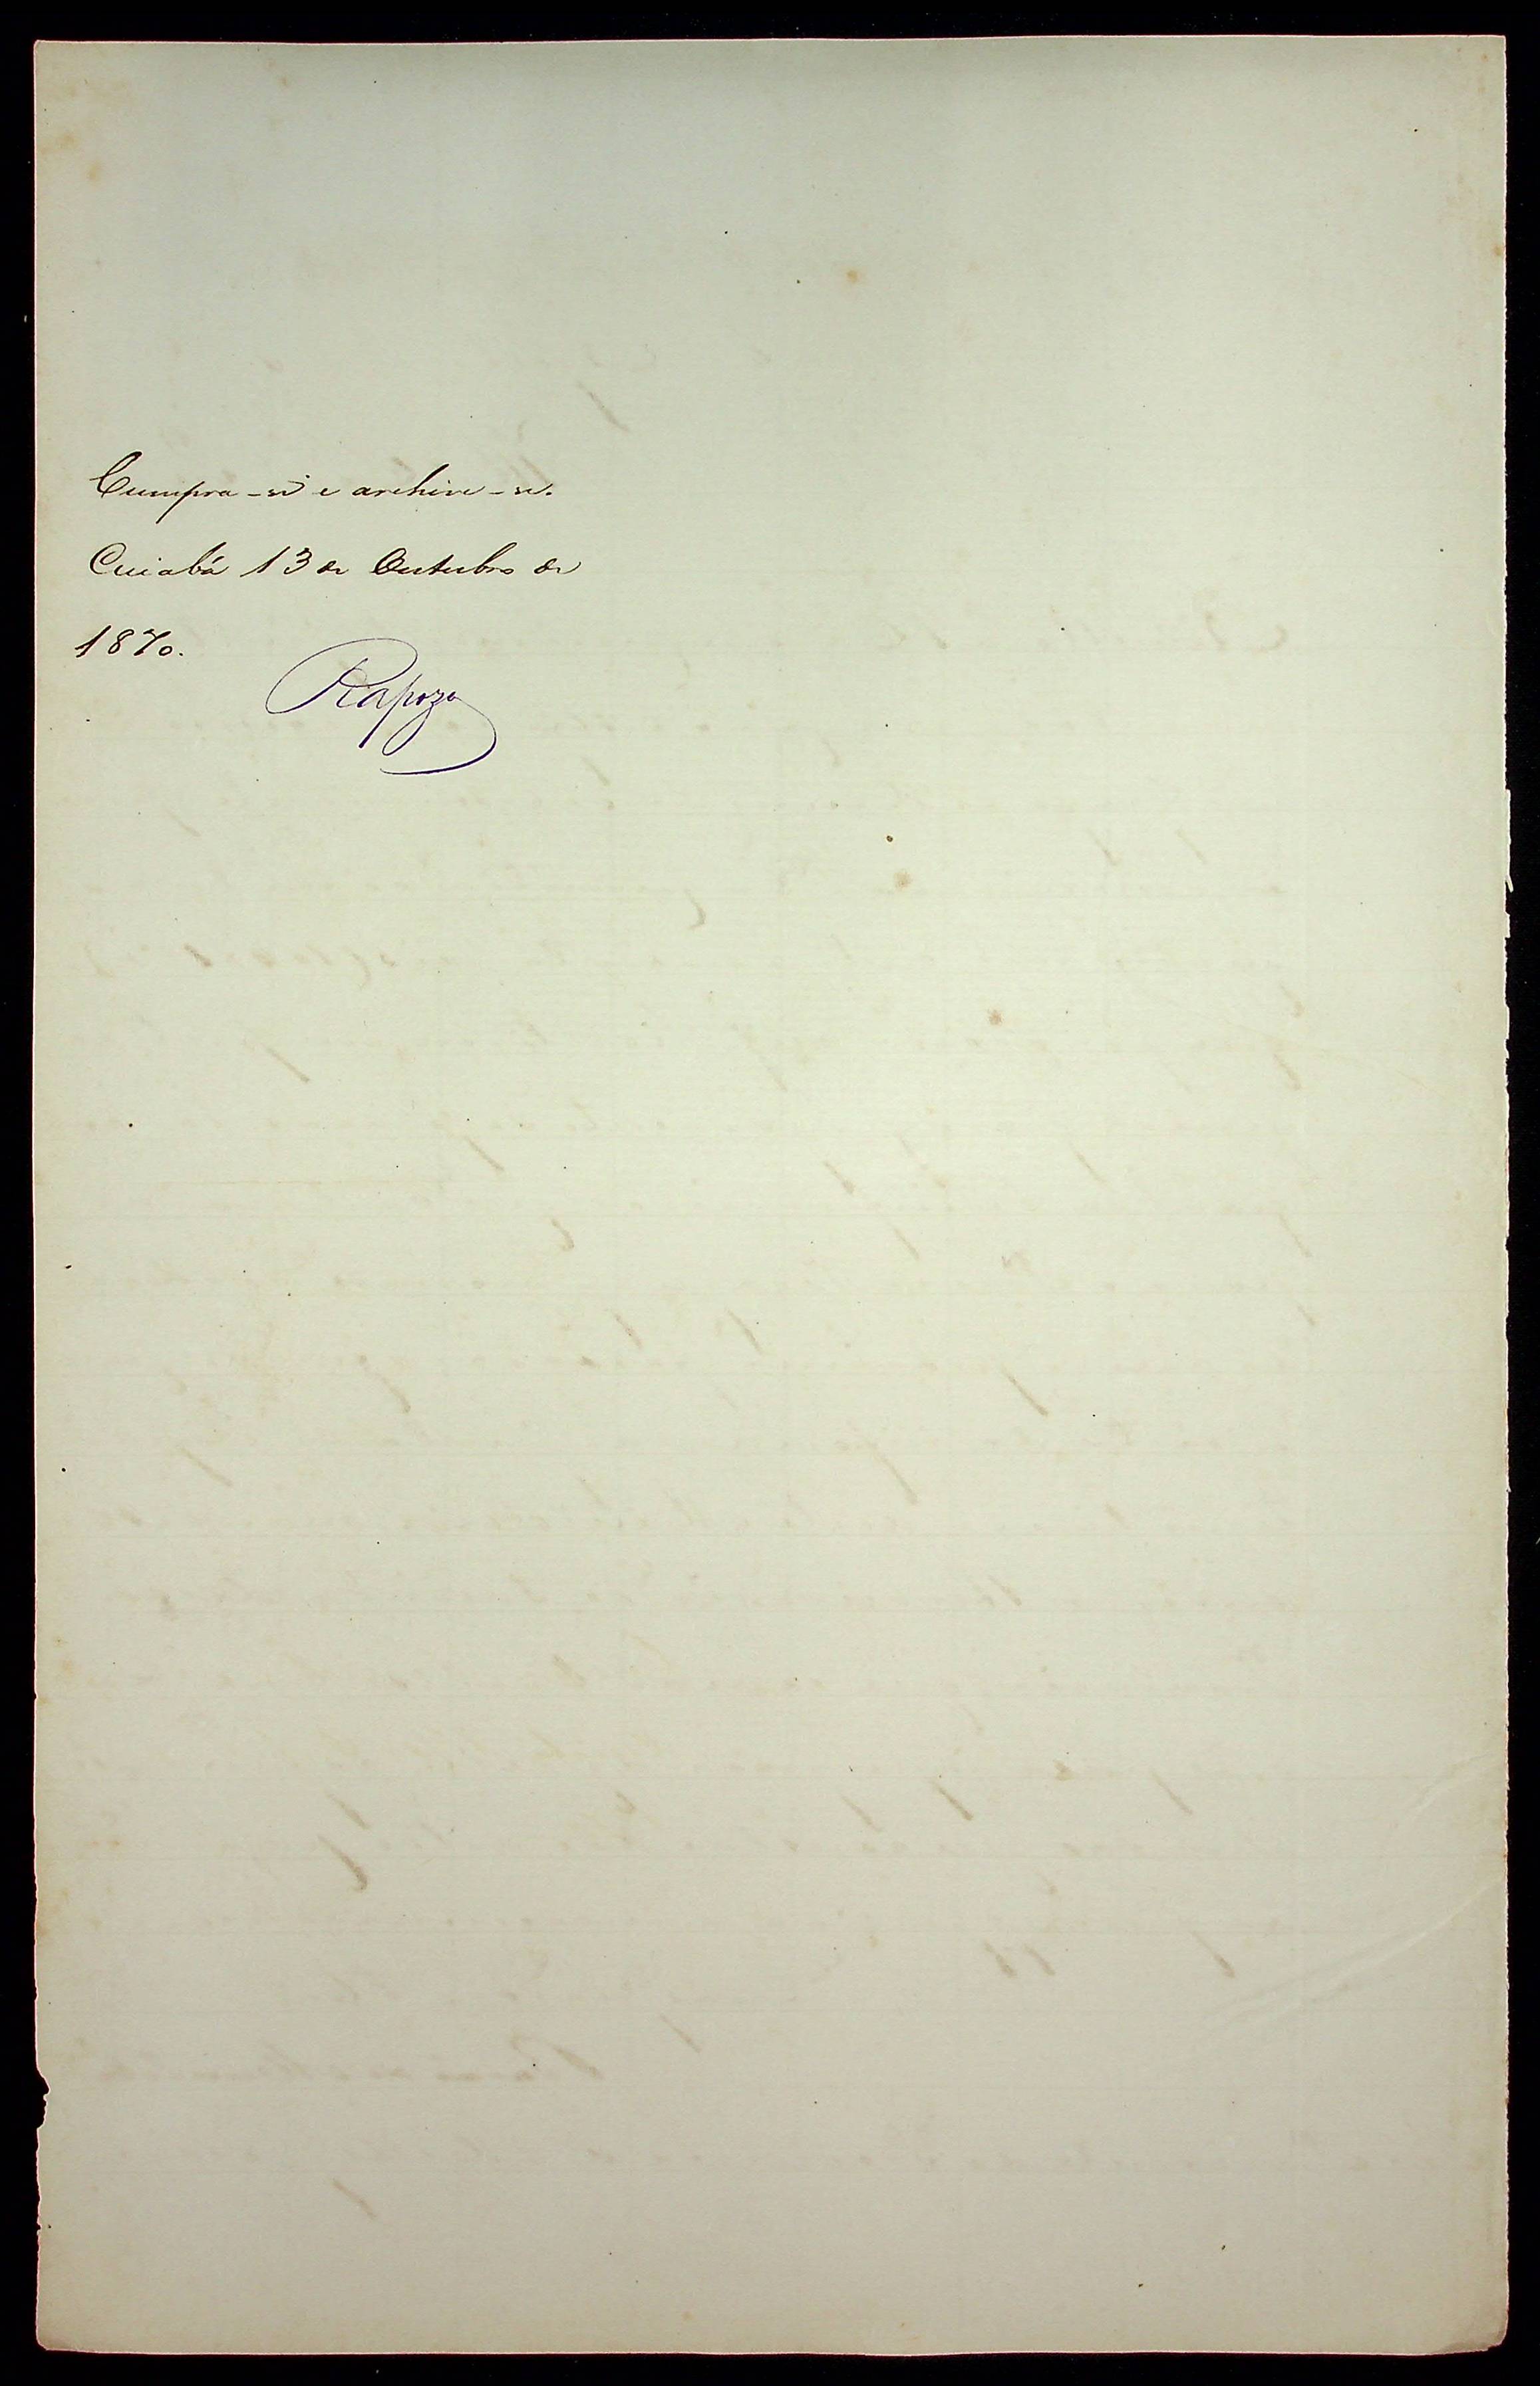 Cumpra-se e archive-se.
Cuiabá 13 de Outubro de
1870.
Rapozo